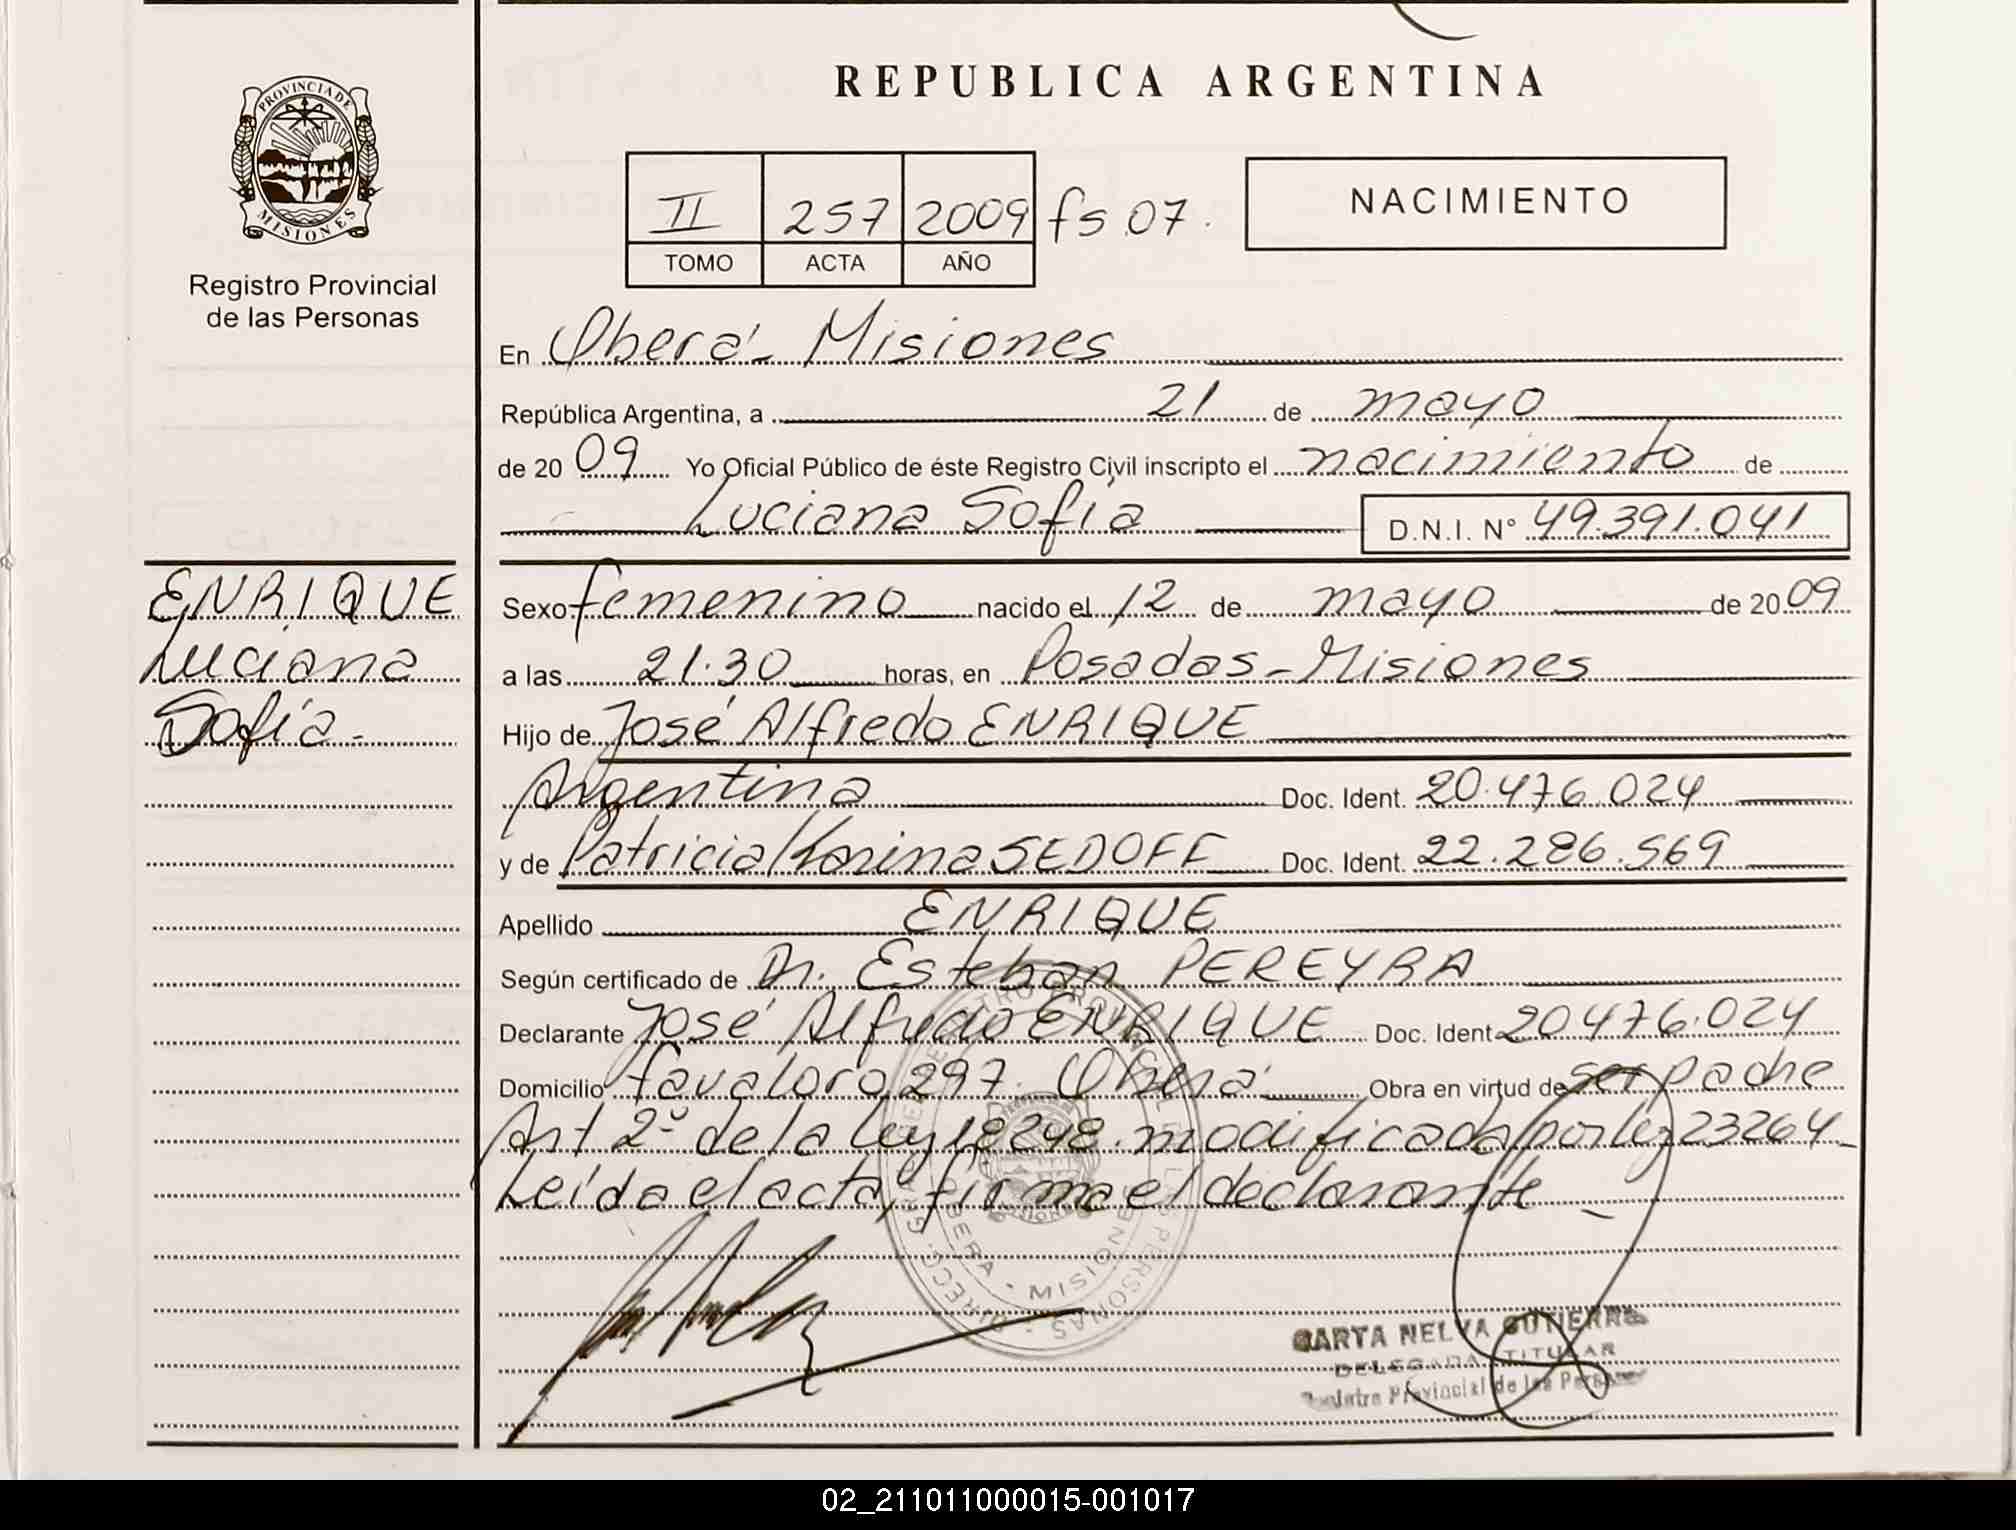 PROVINCIA DE
MISIONES
Registro Provincial
de las Personas
ENRIQUE
Luciana
Sofía.-
REPUBLICA ARGENTINA
II 257 2009 fs 07.
TOMO ACTA AÑO
NACIMIENTO
En Oberá - Misiones
República Argentina, a 21 de mayo
de 20 09 Yo Oficial Público de éste Registro Civil inscripto el nacimiento de
Luciana Sofía D.N.I. N° 49.391.041
Sexo femenino nacido el 12 de mayo de 20 09
a las 21.30 horas, en Posadas - Misiones
Hijo de José Alfredo ENRIQUE
Argentina Doc. Ident. 20.476.024
y de Patricia Karina SEDOFF Doc. Ident. 22.286.569
Apellido ENRIQUE
Según certificado de Dr. Esteban PEREYRA
Declarante José Alfredo ENRIQUE Doc. Ident 20.476.024
Domicilio favaloro 297. Oberá Obra en virtud de ser padre
Art 2º de la ley 18248 modificada por ley 23264-
Leída el acta, firma el declarante -
OBERA - MISIONES
NELVA GUTIERREZ
DELEGADA TITULAR
Registro Provincial de las Personas
02_211011000015-001017